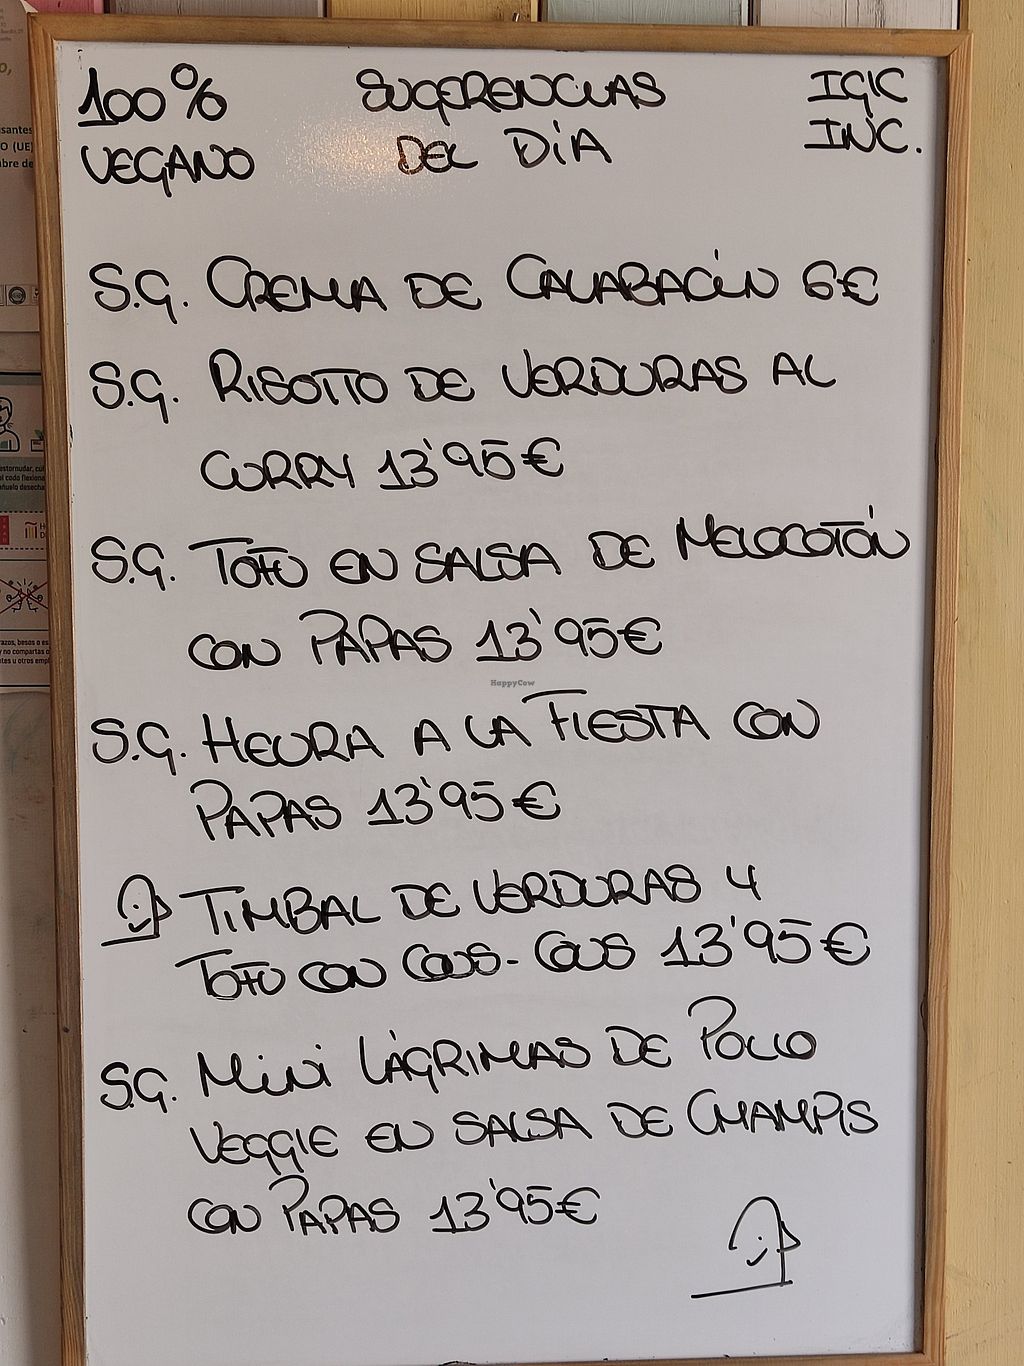 100%
VEGANO
SUGERENCIAS
DEL DÍA
IGIC
INC.
S.G. CREMA DE CALABACÍN 6€
S.G. RISOTTO DE VERDURAS AL
CURRY 13'95€
S.G. TOFU EN SALSA DE MELOCOTÓN
CON PAPAS 13'95€
HappyCow
S.G. HEURA A LA FIESTA CON
PAPAS 13'95€
TIMBAL DE VERDURAS Y
TOFU CON COUS-COUS 13'95€
S.G. MINI LÁGRIMAS DE POLLO
VEGGIE EN SALSA DE CHAMPIS
CON PAPAS 13'95€